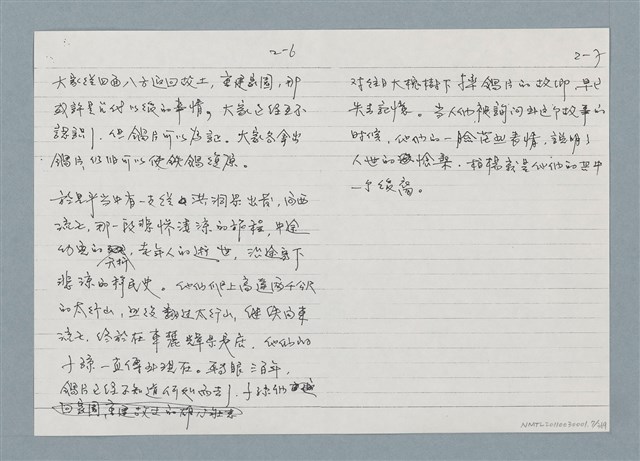 2-6
大家從四面八方返回故土，重建家園，那
或許是幾代以後的事情。大家已經互不
認識了，但鍋片可以為記。大家各拿出
鍋片但即可以使鐵鍋復原。
於是乎其中有一支從洪洞縣出發，向西
流亡，那一段驚悚淒涼的旅程，中途
幼兒的夭折，老年人的逝世，沿途寫下
悲涼的移民史。他們爬上高達兩千公尺
的太行山，並從翻過太行山，繼續向東
流亡，終於在車麓輝縣見底，他們的
子孫一直傳到現在。轉眼三百年，
鍋片已經不知道何如而去了，子孫們
回家園，重建故土的雄心壯志
2-7
對往日大槐樹下摔鍋片的故鄉，早已
失去記憶。當人們被詢問到這个故事的
时候，他們的一臉茫然表情，說明了
人世的悽慘，柏楊就是他們的其中
一个後裔。
NMTL20110030001